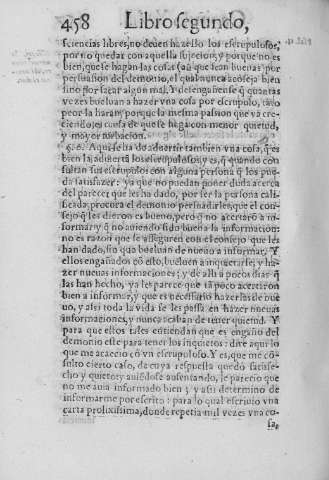 458 Libro segundo,
sciencias libres, no deuen hazello los escrupulosos,
por no quedar con aquella sujecion, y porque no es
bien, que se hagan las cosas (aũ que sean buenas) por
persuasion del demonio, el qual nunca aconseja bien
sino por sacar algun mal. Y desengañense q̃ quantas
vezes bueluan a hazer vna cosa por escrupulo, tãto
peor la haran, porque la mesma passion que va cre-
ciendo, es causa de que se haga con menor quietud,
y mayor turbacion.
Aqui se ha de aduertir tambien vna cosa, q̃ es
bien la aduiertã los escrupulosos, y es, q̃ quando con
sultan sus escrupulos con alguna persona q̃ los pue-
da satisfazer: ya que no puedan poner duda acerca
del parecer que les ha dado, por ser la persona cali-
ficada, procura el demonio persuadirles, que el con-
sejo q̃ les dieron es bueno, pero q̃ no acertarõ a in-
formar, y q̃ no auiendo sido buena la informacion:
no es razon que se asseguren con el consejo que les
han dado, sin que bueluan de nueuo a informar. Y
ellos engañados cõ esto, bueluen a inquietarse, y ha-
zer nueuas informaciones; y de alli a pocos dias q̃
las han hecho, ya les parece que tã poco acertaron
bien a informar, y que es necessario hazerlas de nue
uo, y assi toda la vida se les passa en hazer nueuas
informaciones, y nunca acaban de tener quietud. Y
para que estos tales entiendan que es engaño del
demonio este para tener los inquietos: dire aqui lo
que me acaecio cõ vn escrupuloso. Y es, que me cõ-
sulto cierto caso, de cuya respuesta quedó satisfe-
cho y quieto; y auiẽdose ausentando, le parecio que
no me auia informado bien; y assi determino de
informarme por escrito: para lo qual escriuio vna
carta prolixissima, donde repetia mil vezes vna co-
sa,